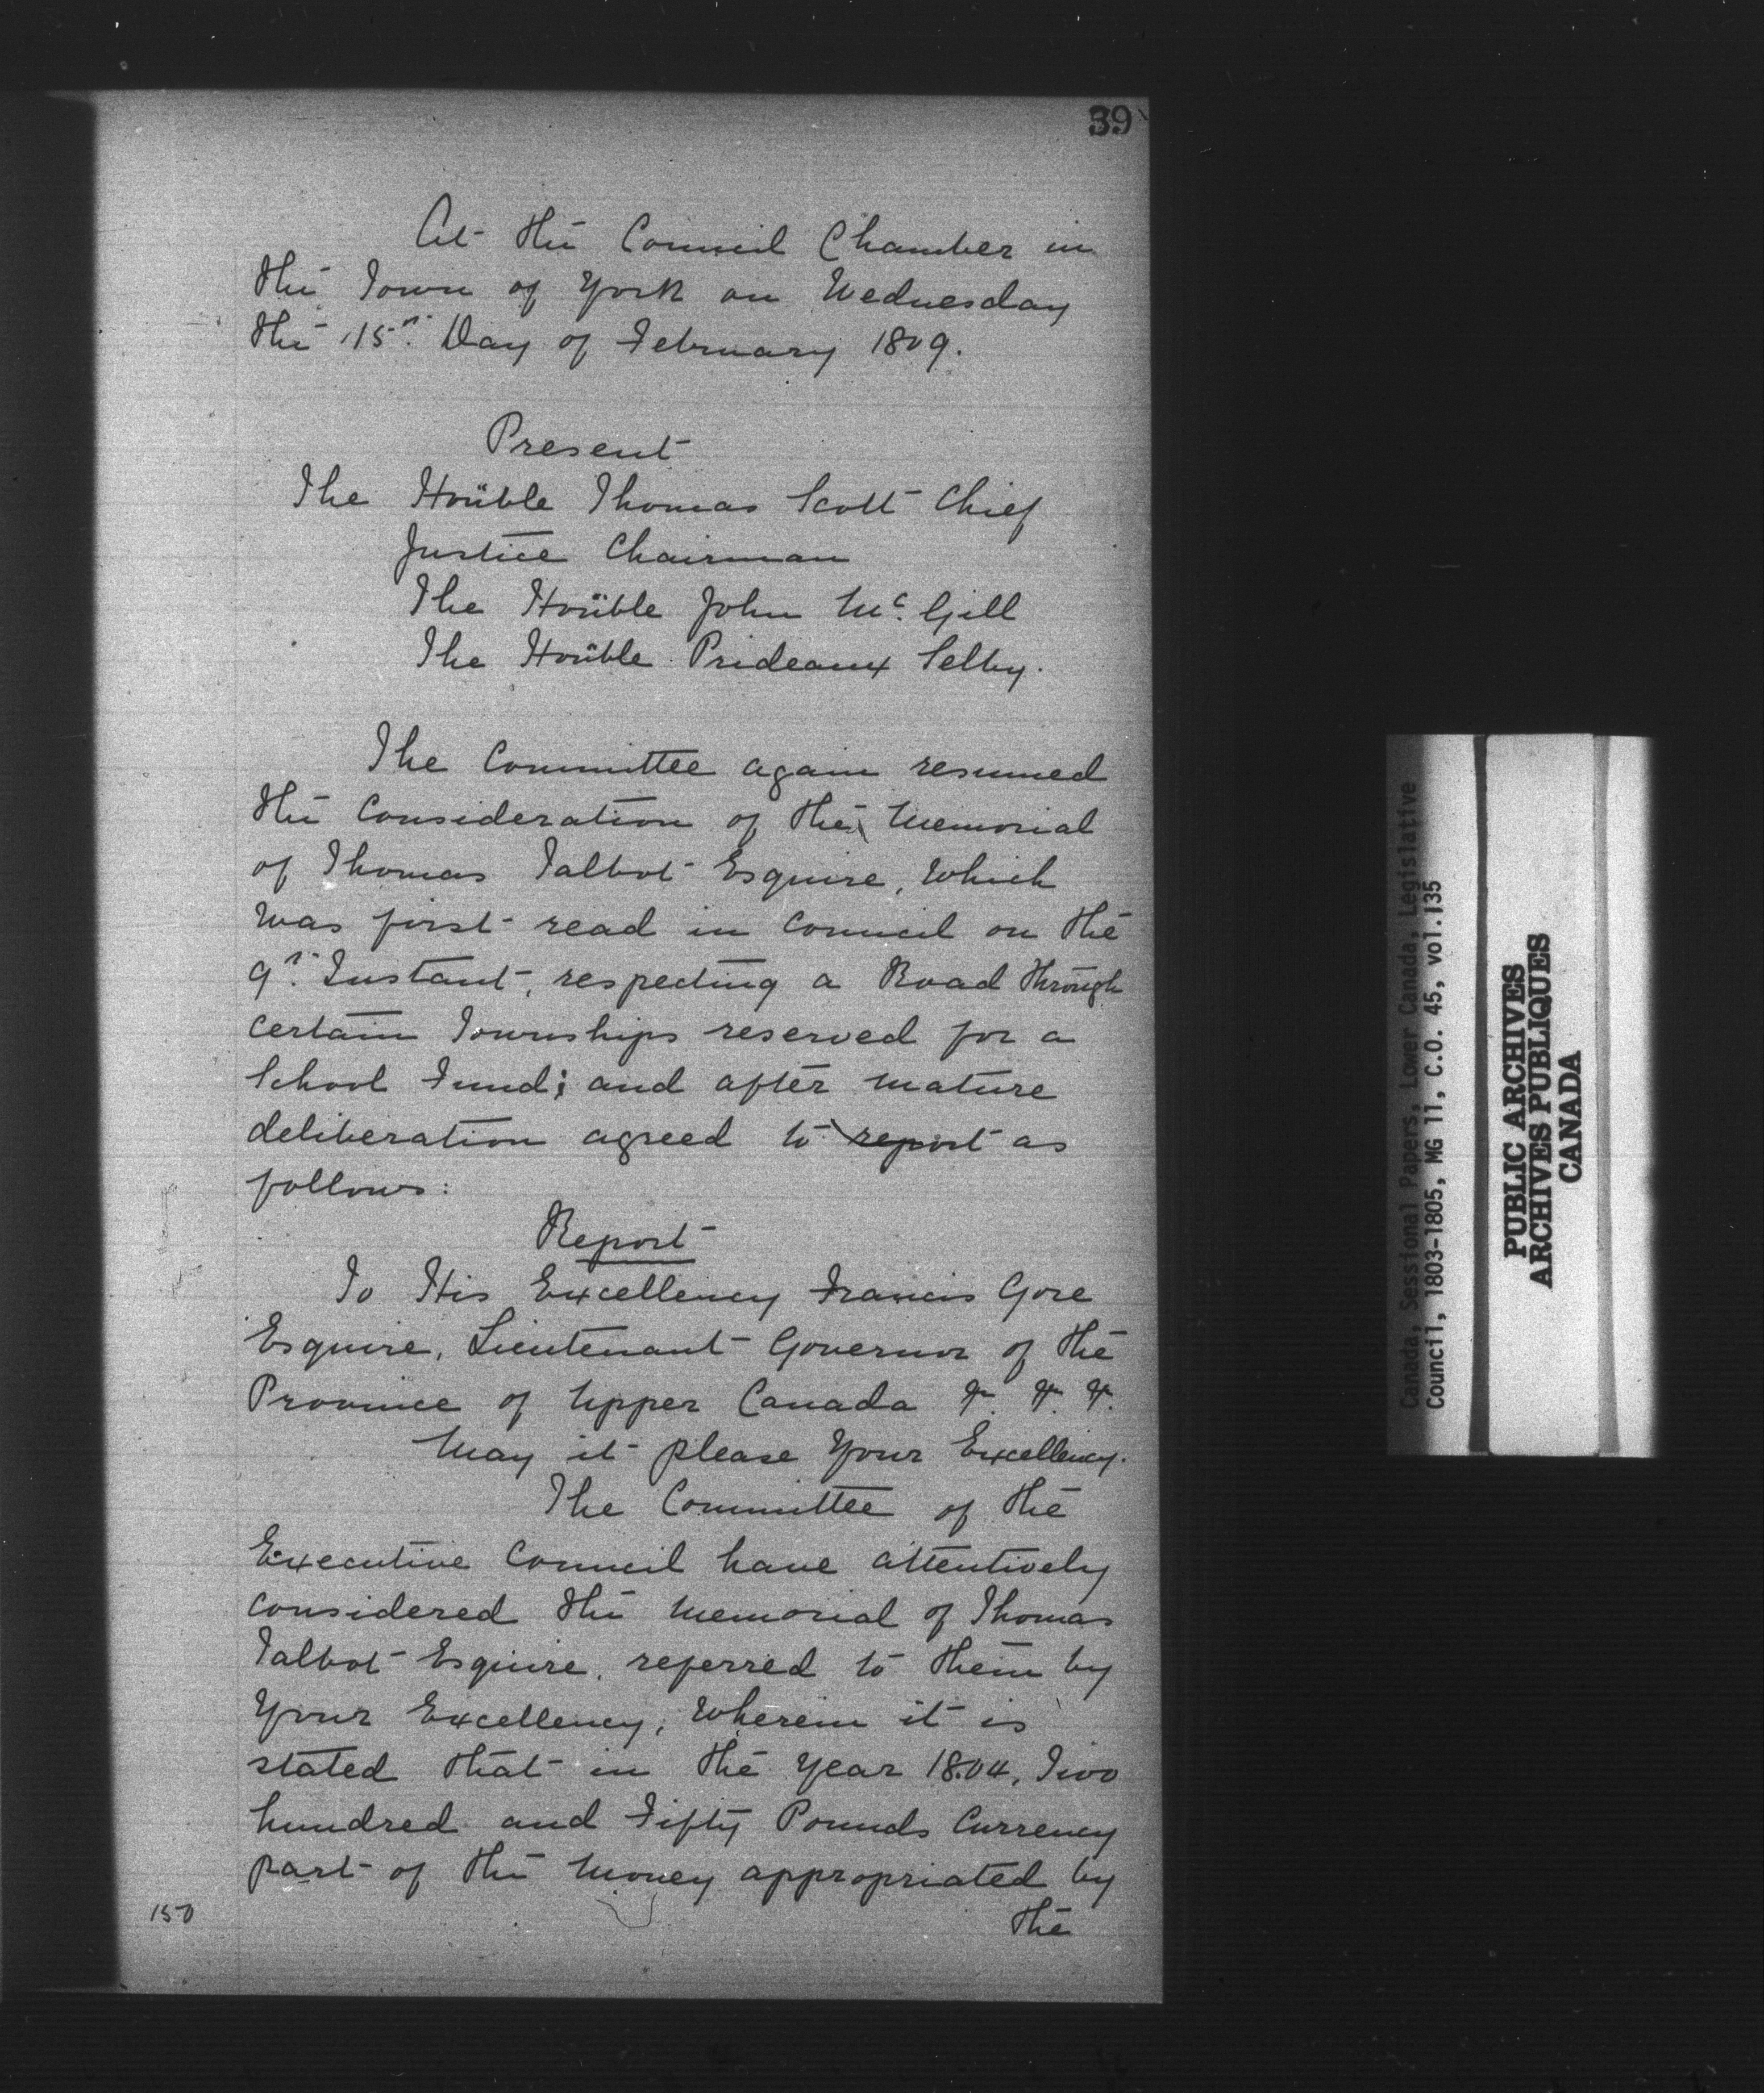 39
At the Council Chamber in
the Town of York on Wednesday
the 15th. Day of February 1809.
Present
The Honble Thomas Scott Chief
Justice Chairman
The Honble John Mc. Gill
The Honble Prideaux Selby.
The Committee again resumed
the Consideration of the Memorial
of Thomas Talbot Esquire, Which
was first read in Council on the
9th. Instant, respecting a Road Through
Certain Townships reserved for a
School Fund; and after mature
deliberation agreed to report as
follows:
Report
To His Excellency Francis Gore
Esquire, Lieutenant Governor of the
Province of Upper Canada &c. &c. &c.
May it please Your Excellency.
The Committee of the
Executive Council have attentively
considered the Memorial of Thomas
Talbot Esquire, referred to them by
Your Excellency, Wherein it is
stated that in the Year 1804, Two
hundred and Fifty Pounds Currency
part of the Money appropriated by
150
the
Canada, Sessional Papers, Lower Canada, Legislative
Council, 1803-1805, MG 11, C.O. 45, vol.135
PUBLIC ARCHIVES
ARCHIVES PUBLIQUES
CANADA